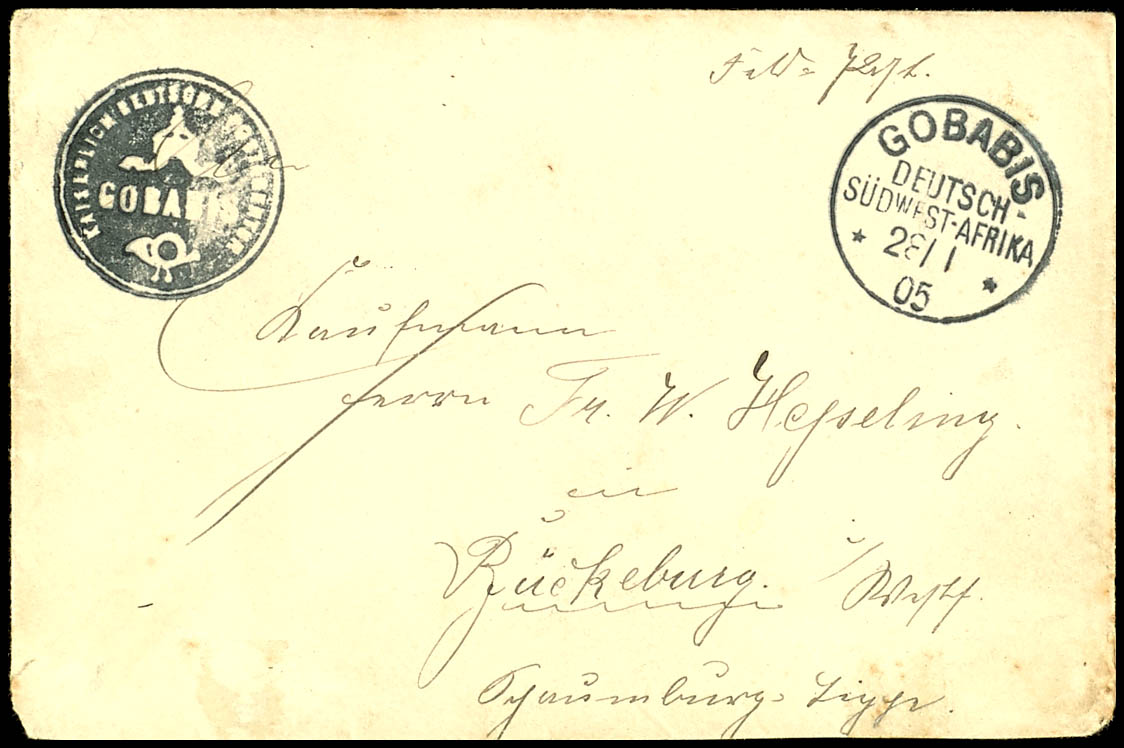 Feld-Post.
KAISERLICH DEUTSCHE
GOBABIS
GOBABIS
DEUTSCH-
SÜDWEST-AFRIKA
28/1
05
An
Kaufmann
Herrn Fr. W. Heſseling.
in
Bückeburg. i/Westf.
Schaumburg-Lippe.